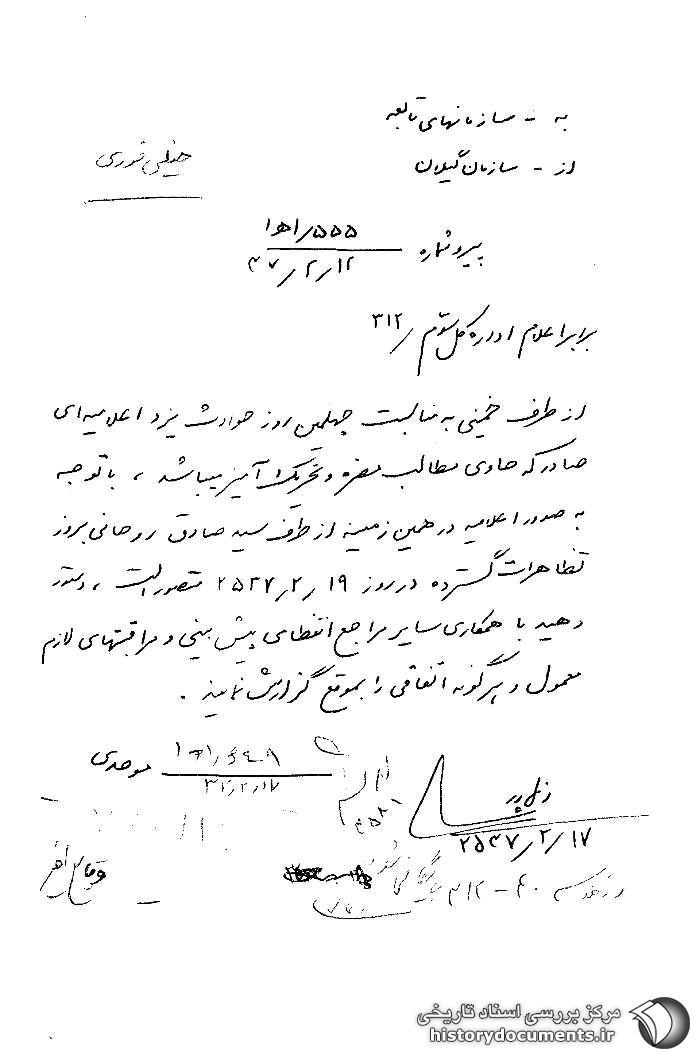 به - سازمانهای تابعه
از - سازمان گیلان
خیلی فوری
پیرو شماره
۵۵۵/ه‍ ۱
۳۷/۲/۱۲
برابر اعلام اداره کل سوم /۳۱۲
از طرف خمینی به مناسبت چهلمین روز حوادث یزد اعلامیه‌ای
صادر که حاوی مطالب مضره و تحریک آمیز میباشد ، با توجه
به صدور اعلامیه در همین زمینه از طرف سید صادق روحانی بروز
تظاهرات گسترده در روز ۲۵۳۷/۲/۱۹ متصور است ، دستور
دهید با همکاری سایر مراجع انتظامی پیش بینی و مراقبتهای لازم
معمول و هرگونه اتفاقی را بموقع گزارش نمایند .
موحدی
۲۵۳۷/۲/۱۷
۳۱۲ - ۴۰
مرکز بررسی اسناد تاریخی
historydocuments.ir